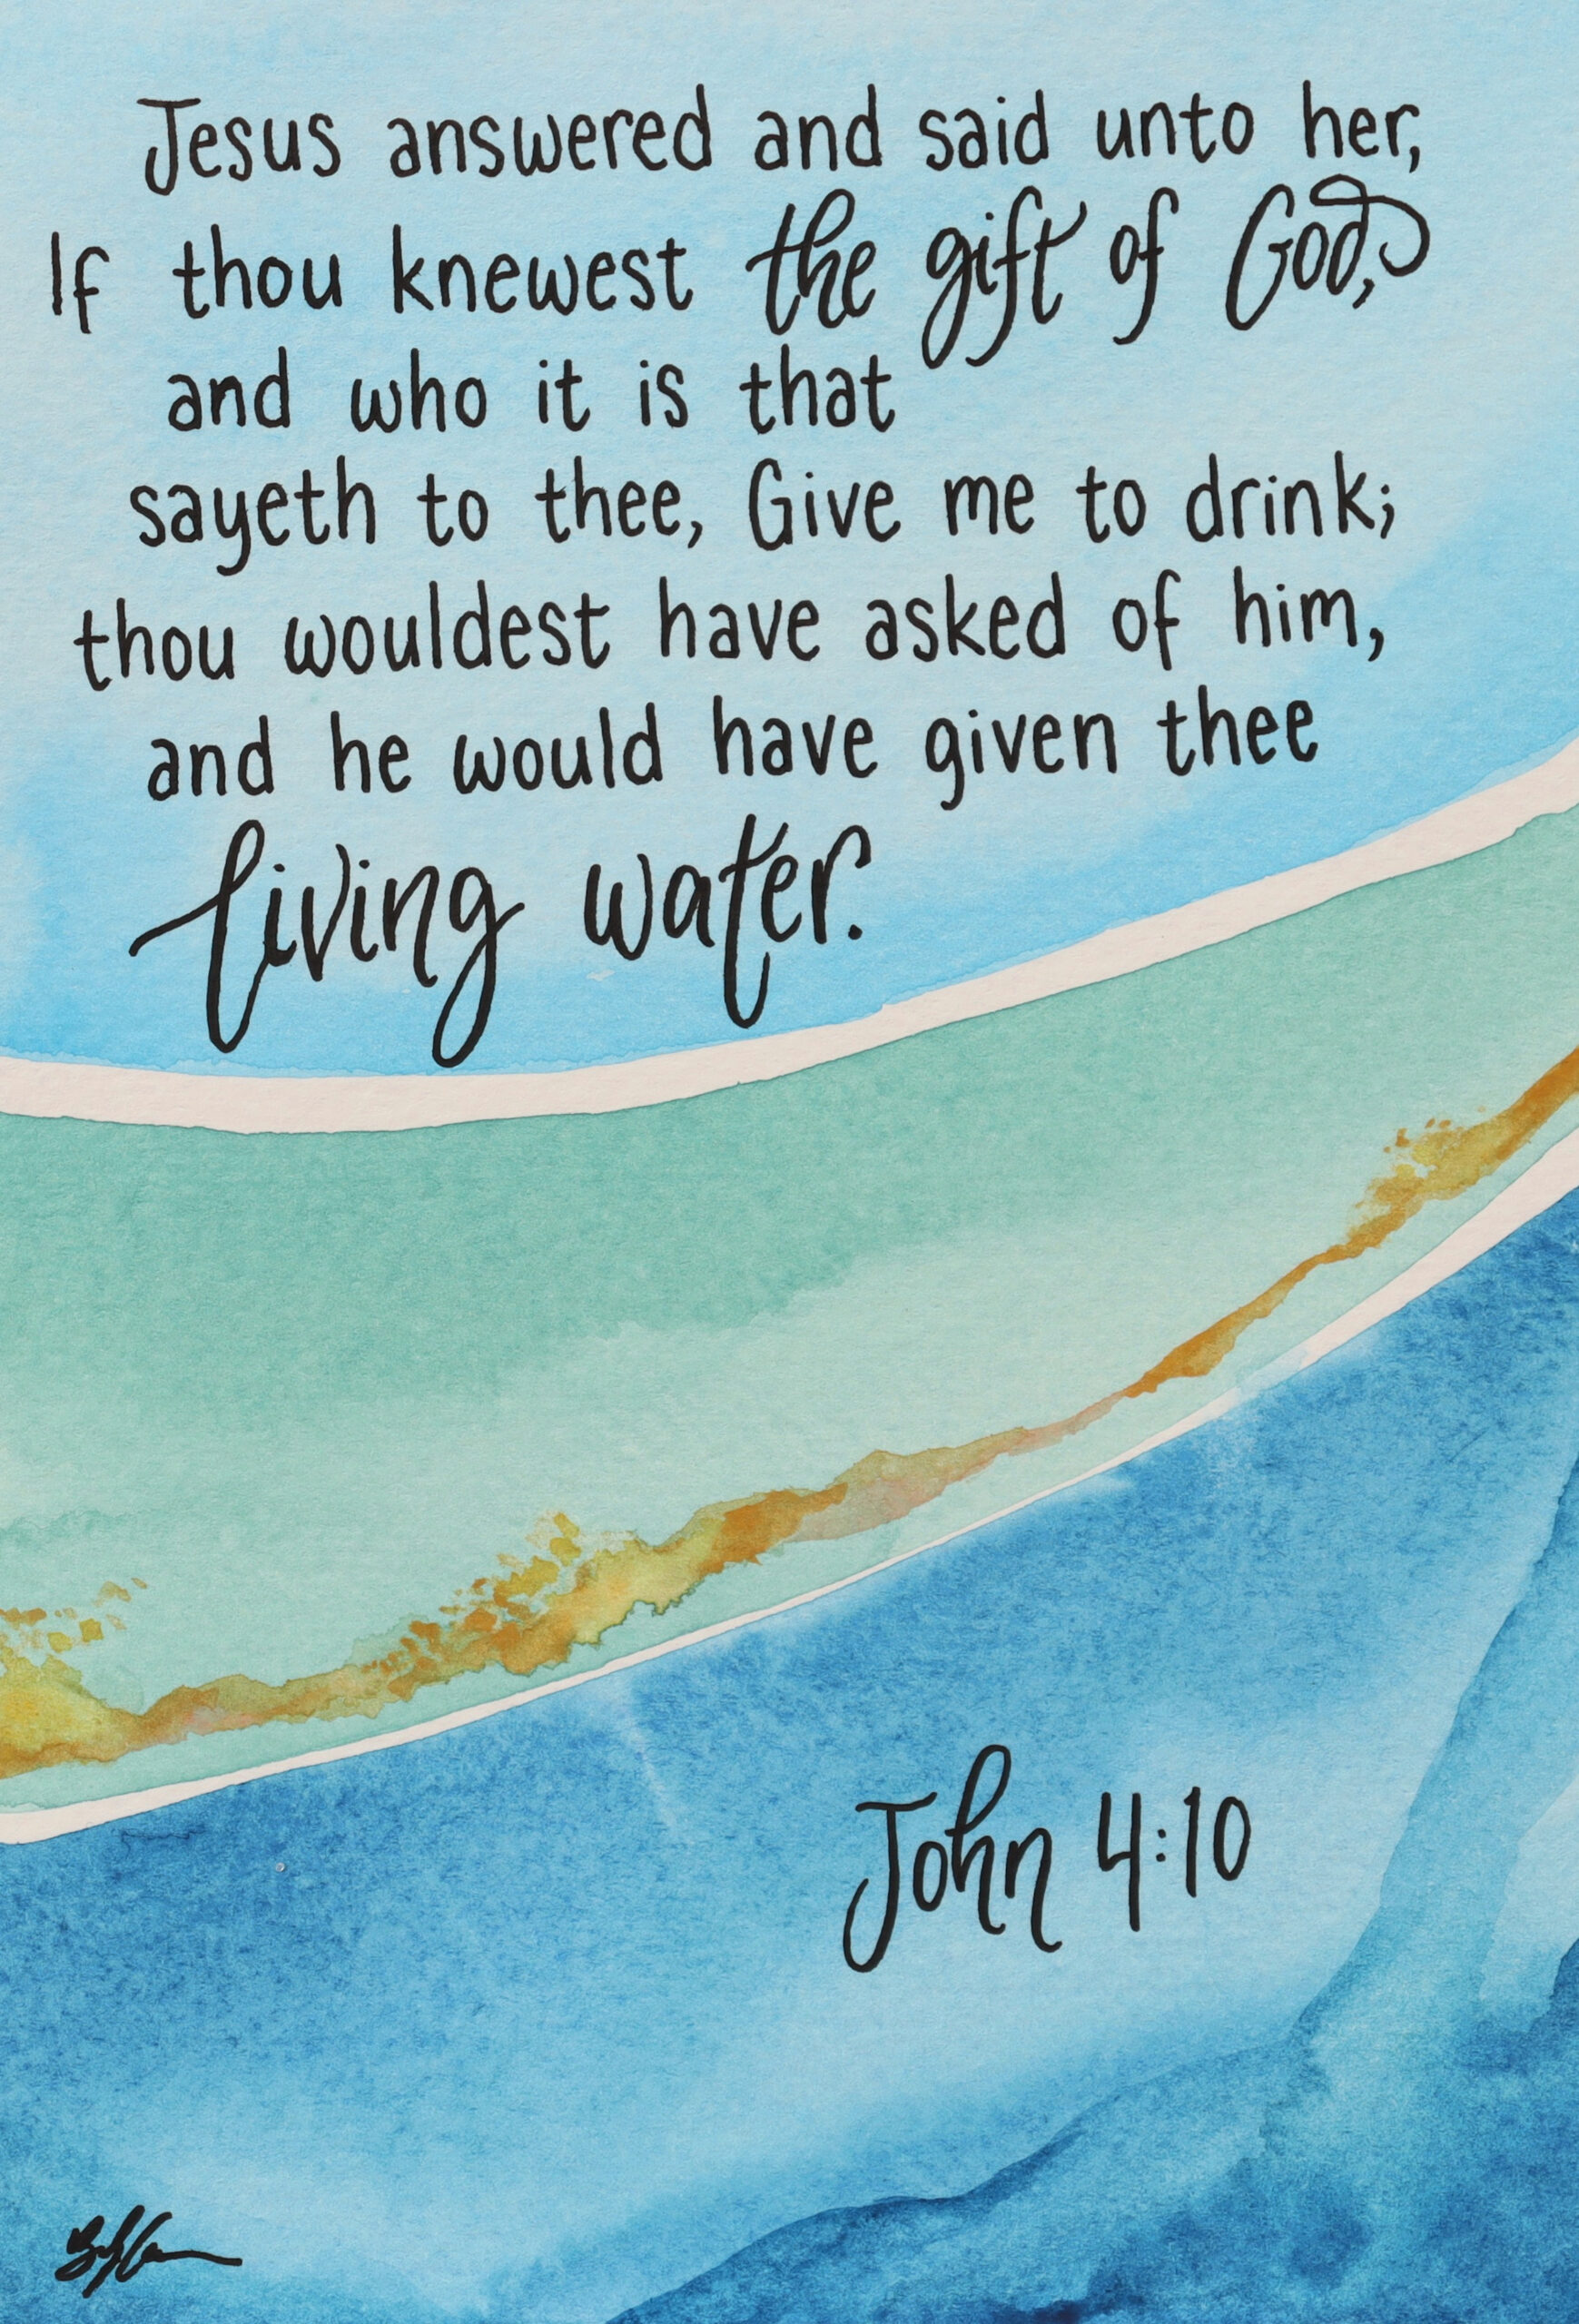 Jesus answered and said unto her,
If thou knewest the gift of God,
and who it is that
sayeth to thee, Give me to drink;
thou wouldest have asked of him,
and he would have given thee
living water.
John 4:10